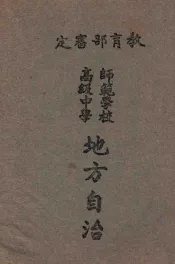 教育部審定
師範學校
高級中學
地方自治